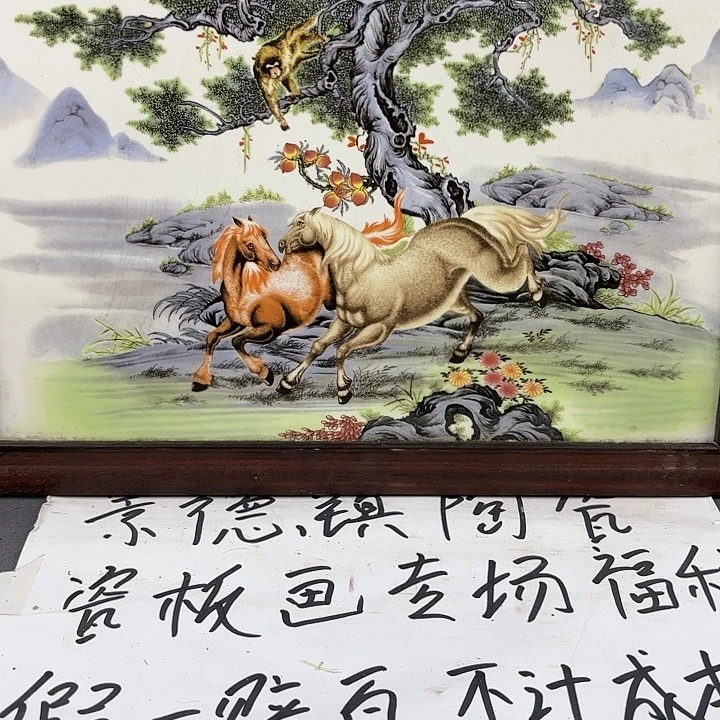 景德镇陶瓷
瓷板画专场福利
假一赔百 不计成本